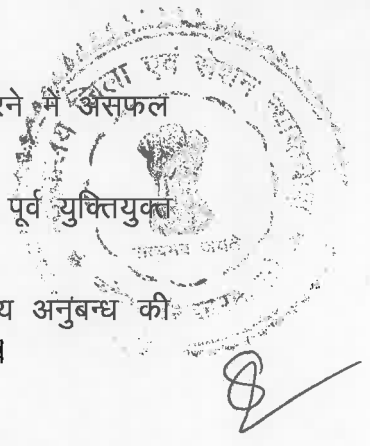 रने में असफल
पूर्व युक्तियुक्त
य अनुबन्ध की
जिला एवं
सत्यमेव जयते